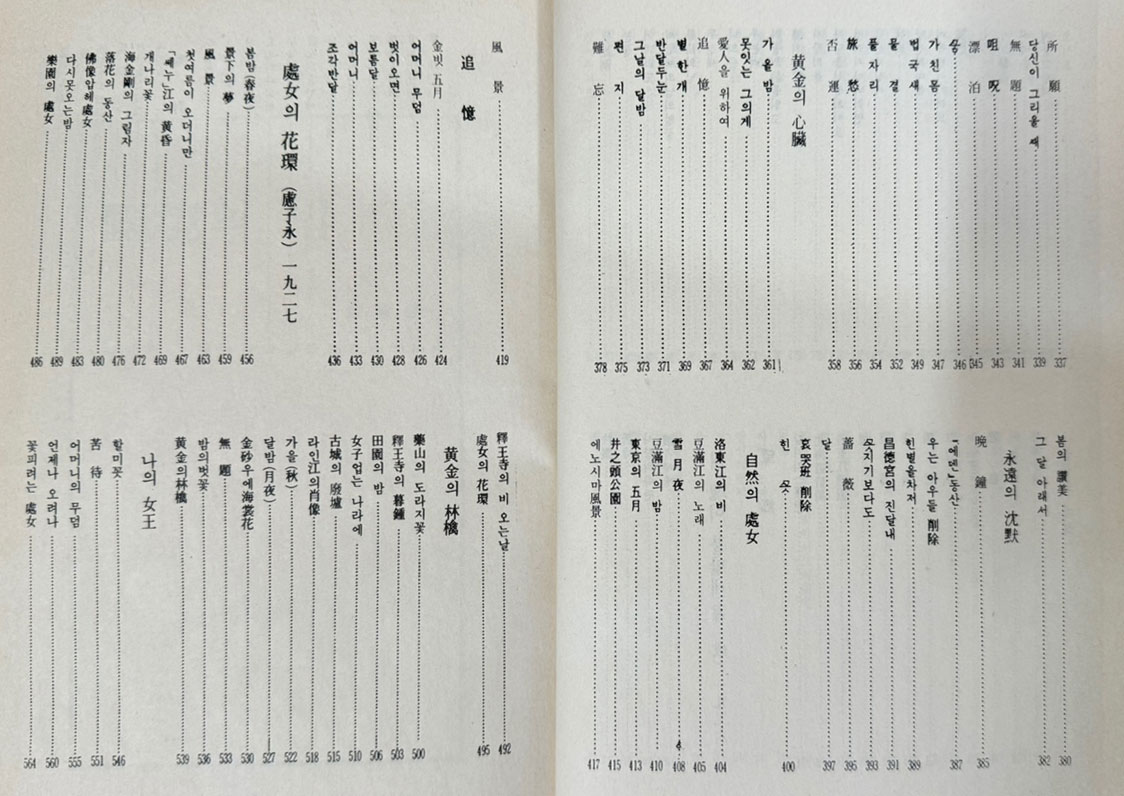 所願 337
당신이 그리울 때 339
無題 341
咀呪 343
漂泊 345
346
가친몸 347
법국새 349
물결 352
풀자리 354
旅愁 356
否運 358
黃金의 心臟
가을밤 361
못잇는 그의게 362
愛人을 위하여 364
追憶 367
별한개 369
반달두눈 371
그날의 달밤 373
편지 375
難忘 378
봄의 讚美 380
그 달 아래서 382
永遠의 沈默
晩鐘 385
「에덴」동산 387
우는 아우들 削除
흰별을차저 389
昌德宮의 진달내 391
지기보다도 393
薔薇 395
달 397
哀哭班 削除
흰 400
自然의 處女
洛東江의 비 404
豆滿江의 노래 405
雪月夜 408
豆滿江의 밤 410
東京의 五月 413
井之頭公園 415
에노시마風景 417
風景 419
追憶
金빗 五月 424
어머니 무덤 426
벗이오면 428
보름달 430
어머니 433
조각반달 436
處女의 花環 (盧子永) 一九二七
봄밤(春夜) 456
景下의 夢 459
風景 463
첫여름이 오더니만 467
「쎄누」江의 黃昏 469
개나리꽃 472
海金剛의 그림자 476
落花의 동산 480
佛像압헤處女 483
다시못오는밤 489
樂園의 處女 486
釋王寺의 비 오는날 492
處女의 花環 495
黃金의 林檎
藥山의 도라지꽃 500
釋王寺의 暮鍾 503
田園의 밤 506
女子업는 나라에 510
古城의 廢墟 515
라인江의肖像 518
가을(秋) 522
달밤(月夜) 527
金砂우에海棠花 530
無題 533
밤의벗꽃 536
黃金의林檎 539
나의 女王
할미꽃 546
苦待 551
어머니의 무덤 555
언제나 오려나 560
꽃피려는 處女 564